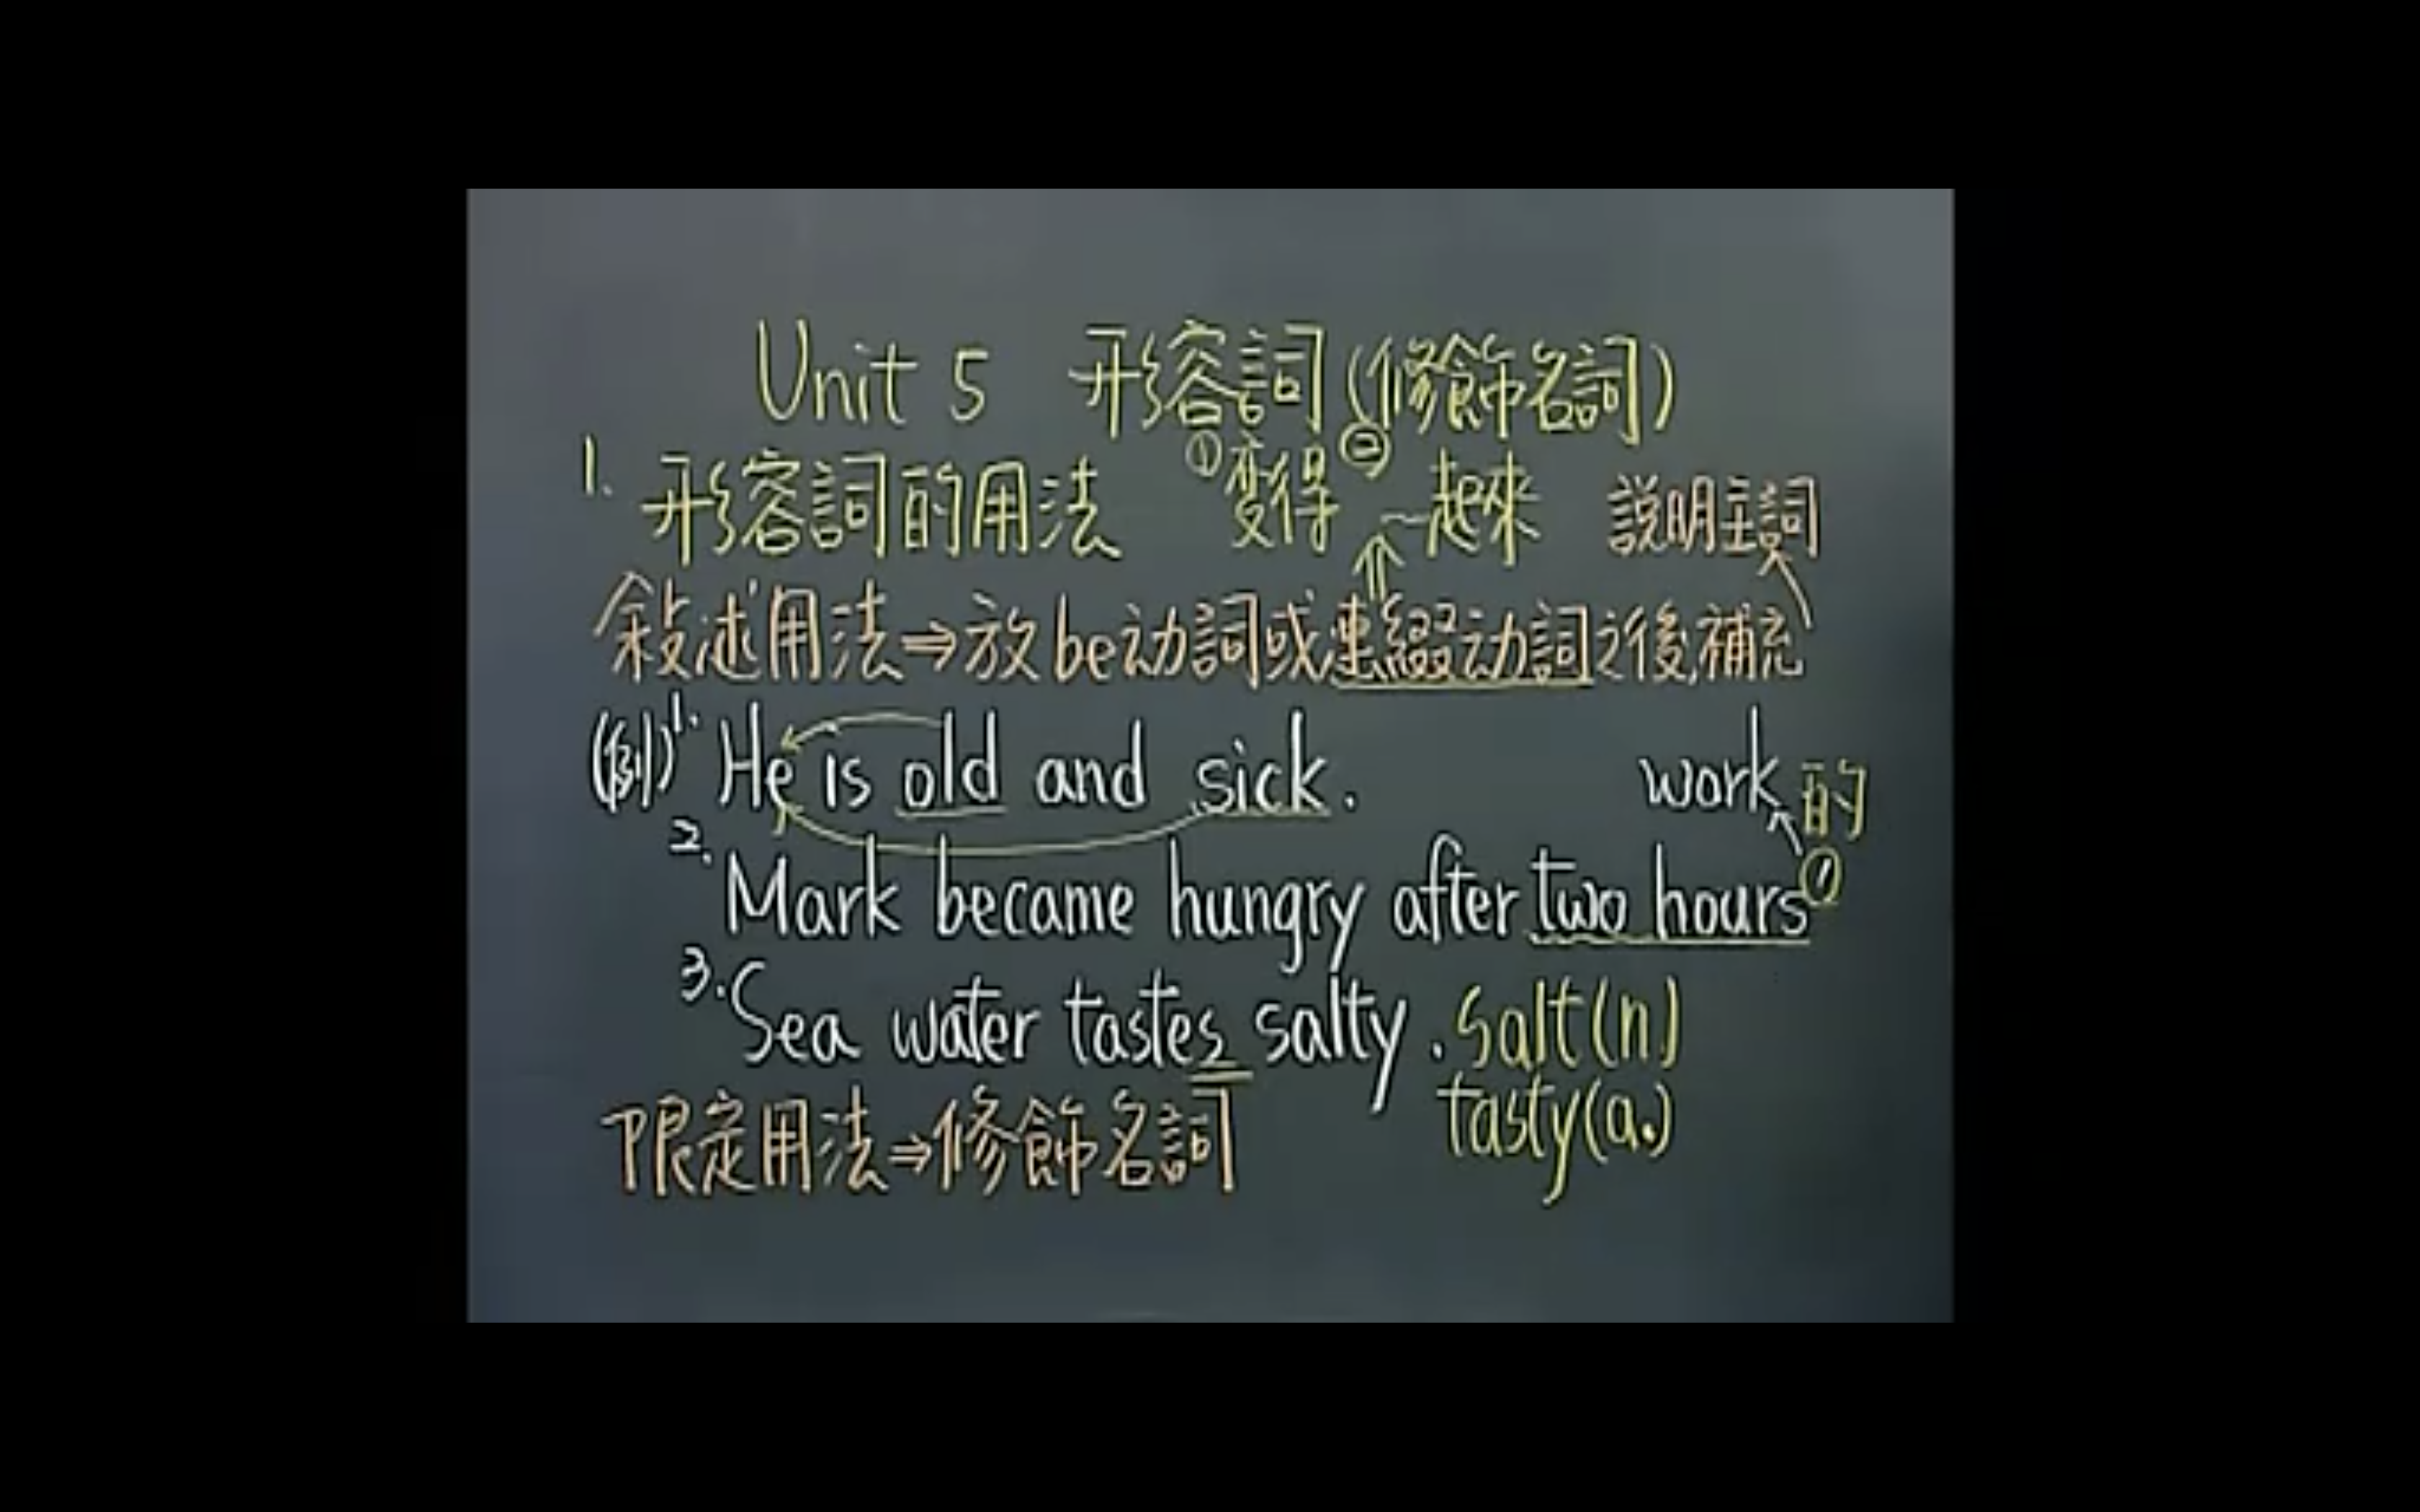 Unit 5 形容詞(修飾名詞)
1. 形容詞的用法 ①変得 ②~起來 說明主詞
敍述用法⇒放be动詞或連綴动詞之後,補充
(例)1. He is old and sick. work的
2. Mark became hungry after two hours'
3. Sea water tastes salty. salt(n)
限定用法⇒修飾名詞 tasty(a.)